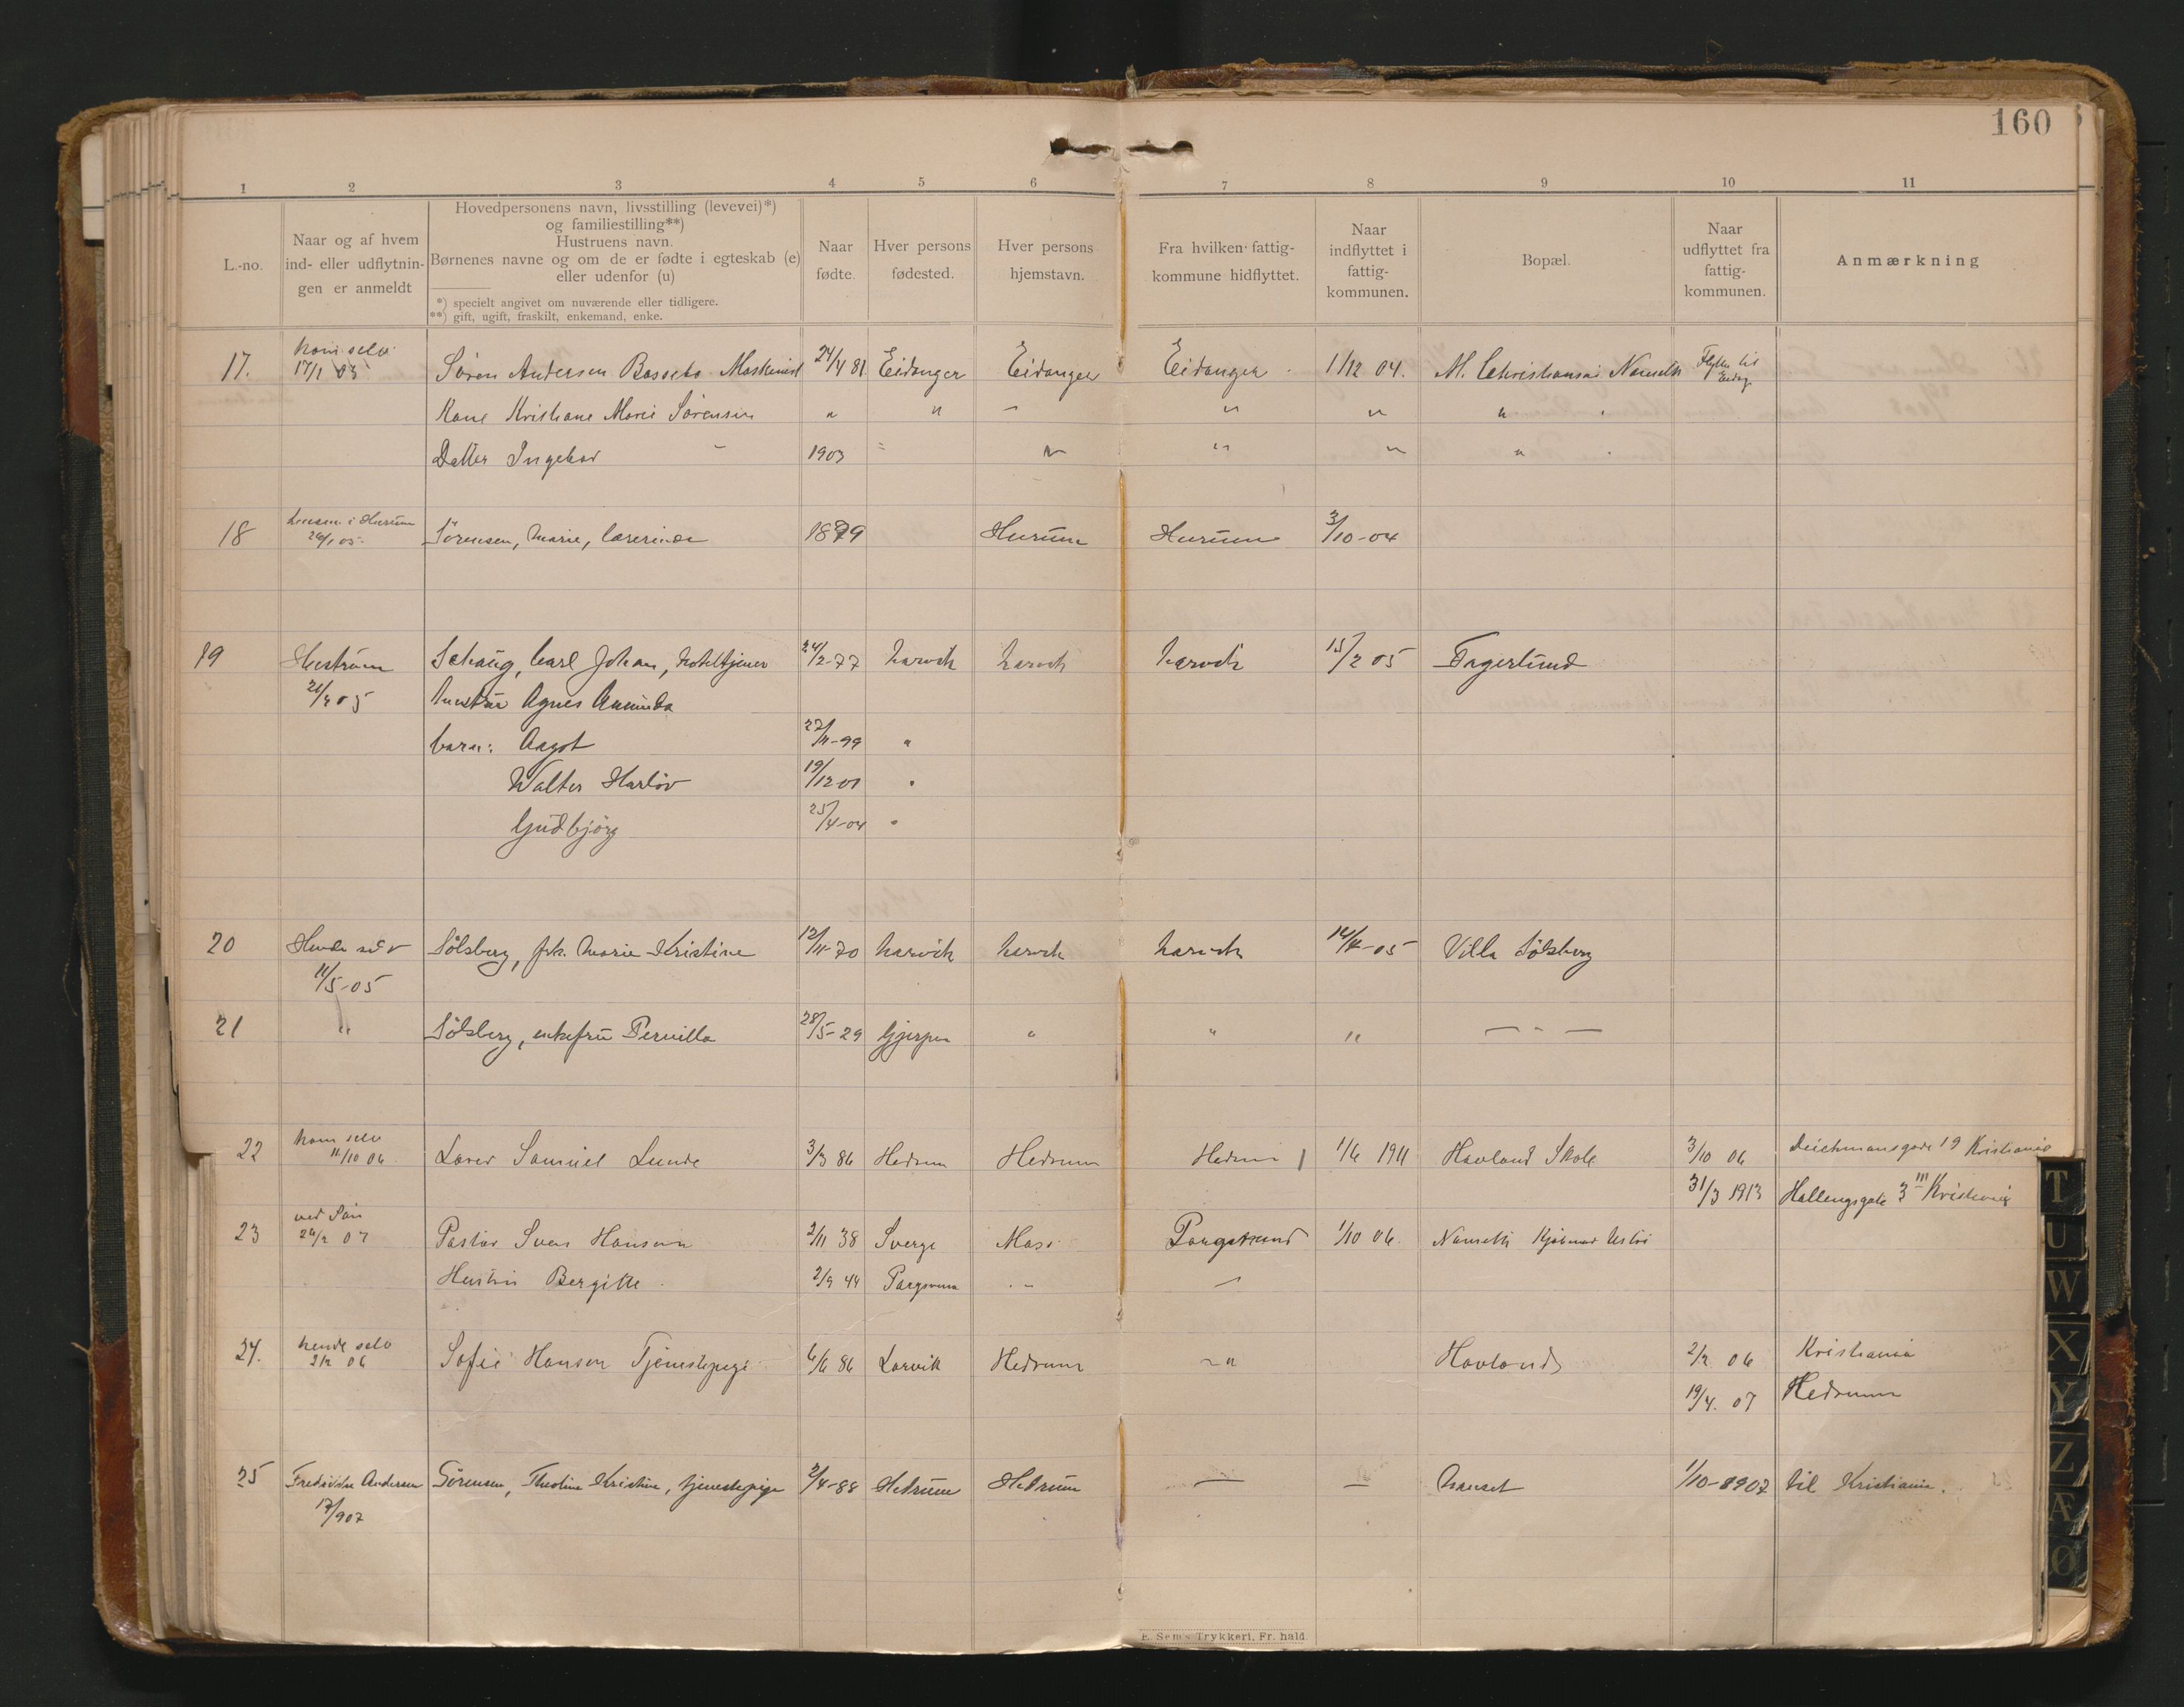 160
1 2 3 4 5 6 7 8 9 10 11
L.-no.
Naar og af hvem
ind- eller udflytnin-
gen er anmeldt
Hovedpersonens navn, livsstilling (levevei)*)
og familiestilling**)
Hustruens navn.
Børnenes navne og om de er fødte i egteskab (e)
eller udenfor (u)
*) specielt angivet om nuværende eller tidligere.
**) gift, ugift, fraskilt, enkemand, enke.
Naar
fødte.
Hver persons
fødested.
Hver persons
hjemstavn.
Fra hvilken fattig-
kommune hidflyttet.
Naar
indflyttet i
fattig-
kommunen.
Bopæl.
Naar
udflyttet fra
fattig-
kommunen.
Anmærkning
ham selv
17. 17/1 05 Søren Andersen Maskinist 24/4 81 Eidanger Eidanger Eidanger 1/12 04. M. Christiansen Flyttet til
Kone Kristiane Marie Sørensen " " " " "
Datter Ingebor 1903 " " "
18 i Hurum Sörensen, Marie, lærerinde 1879 Hurum Hurum 3/10-04
19 Schaug, Carl Johan, hoteltjener 24/2-77 Larvik Larvik Larvik 15/2 05 Fagerlund
hustru Agnes Aminda
barn: Aagot 22/11-99 "
Walter Harlöv 19/12 01 "
Gudbjörg 25/4-04 "
20 Hende selv Sölsberg, frk. Marie Kristine 12/11-70 Larvik Larvik Larvik 14/4-05 Villa Sölsberg
11/5-05
21 " Sölsberg, enkefru Pernilla 28/5-29 Gjerpen " " " — " —
ham selv
22 11/10 06 Lærer Samuel Lunde 3/3 86 Hedrum Hedrum Hedrum 1/6 1911 Havland Skole 3/10 06 Deichmansgade 19 Kristiania
31/3 1913 Hallengsgate 3 III Kristiania
23 07 Pastor Sven Hansen 2/11 38 Sverge Moss 1/10 06.
Hustru Bergitte 2/9 44
hende selv
24. 2/2 06 Sofie Hansen Tjenestepige 6/6 86 Larvik Hedrum " Havland 2/2 06 Kristiania
19/4. 07 Hedrum
25 Fredrikke Andersen Sörensen, Theoline Kristine, tjenestepige 2/4-88 Hedrum Hedrum — — Nanset 1/10-1907 til Kristiania.
17/907
E. Sem's Trykkeri, Fr. hald.
T
U
W
X
Y
Z
Æ
Ø